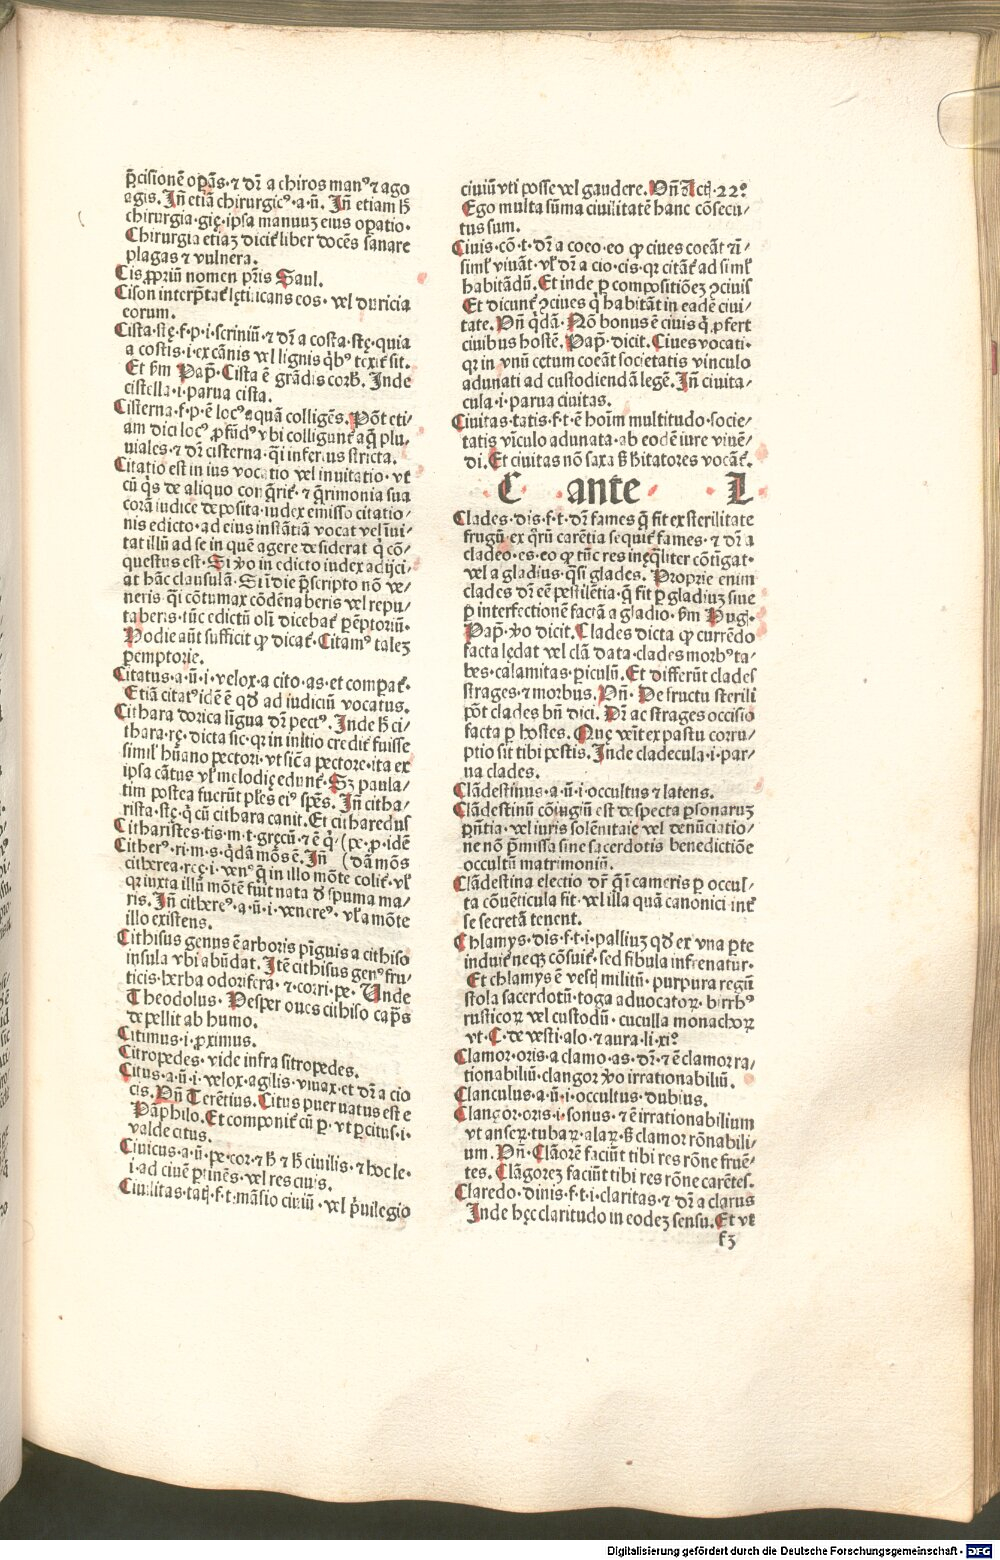 p̄cisionē opās·⁊ dr̄ a chiros manꝰ ⁊ ago
agis. Jn̄ etiā chirurgicꝰ·a·ū. Jn̄ etiam h̄
chirurgia·gię·ipsa manuuz eius opatio·
Chirurgia etiaz dicit̄ liber docēs sanare
plagas ⁊ vulnera.
Cis ꝓpriū nomen pr̄is Saul.
Cison interp̄tat̄ lętificans eos· vel duricia
eorum.
Cista·stę·f·p·i·scriniū·⁊ dr̄ a costa·stę·quia
a costis·i·ex cānis vel lignis qͥbꝰ texit̄ sit.
Et ẜm Pap̄·Cista ē grādis corb̄. Jnde
cistella·i·parua cista.
Cisterna·f·p·ē locꝰ aquā colligēs. Pōt eti⸗
am dici locꝰ ꝓfūdꝰ vbi colligunt̄ aq̄ plu⸗
uiales·⁊ dr̄ cisterna·q̄i inferius stricta.
Citatio est in ius vocatio vel inuitatio·vt
cū q̄s de aliquo conq̄rit̄·⁊ q̄rimonia sua
corā iudice deposita·iudex emisso citatio⸗
nis edicto·ad eius instātiā vocat vel īui⸗
tat illū ad se in quē agere desiderat q̄ cō⸗
questus est·Si ꝟo in edicto iudex adijci⸗
at hāc clausulā·Si die p̄scripto nō ve⸗
neris·q̄i cōtumax cōdēnaberis vel repu⸗
taberis·tūc edictū oli dicebat̄ pēptoriū·
Hodie aūt sufficit ꝙ dicat̄·Citamꝰ talez
pemptorie.
Citatus·a·ū·i·velox·a cito·as·et compat̄·
Etiā citatꝰ idē ē qd̄ ad iudiciū vocatus.
Cithara dorica līgua dr̄ pectꝰ. Jnde h̄ ci⸗
thara·rę·dicta sic·qr in initio credit̄ fuisse
simil̄ hūano pectori·vt sic̄ a pectore·ita ex
ipsa cātus vl̄ melodię edunt̄·Sz paula⸗
tim postea fuerūt pl̄es eiꝰ spēs. Jn̄ citha⸗
rista·stę·q̄ cū cithara canit. Et citharedus
Citharistes·tis·m·t·gręcū·⁊ ē q̄·(pe·p·idē
Citherꝰ·ri·m·s·q̄dā mōs ē. Jn̄ (dā mōs
citherea·reę·i·venꝰ q̄ in illo mōte colit̄·vl̄
qr iuxta illū mōtē fuit nata d̄ spuma ma⸗
ris. Jn̄ cithereꝰ·a·ū·i·venereꝰ·vl̄ a mōte
illo existens.
Cithisus genus ē arboris pīguis a cithiso
insula vbi abūdat. Jtē cithisus genꝰ fru⸗
ticis·herba odorifera·⁊ corri·pe· Unde
Theodolus·Vesper oues cithiso cap̄s
depellit ab humo.
Citimus·i·proximus.
Citropedes·vide infra sitropedes.
Citus·a·ū·i·velox·agilis·viuax·et dr̄ a cio
cis. Vn̄ Terētius. Citus puer natus est e
Pāphilo. Et componit̄ cū per·vt pcitus·i·
valde citus.
Ciuicus·a·ū·pe·cor·⁊ h̄ ⁊ h̄ ciuilis·⁊ hoc le·
i·ad ciuē ptinēs·vel res ciuis.
Ciuilitas·tatꝭ·f·t·māsio ciuiū·vel p̄uilegio
ciuiū vti posse vel gaudere. Vn̄ Act̄·22°
Ego multa sūma ciuilitatē hanc cōsecu⸗
tus sum.
Ciuis·cō·t·dr̄ a coeo·eo ꝙ ciues coeāt ⁊ī⸗
siml̄ viuāt·vl̄ dr̄ a cio·cis·qr citāt̄ ad siml̄
habitādū. Et inde p compositionēz ꝯciuis
Et dicunt̄ ꝯciues q̄ habitāt in eadē ciui⸗
tate. Vn̄ q̄dā·Nō bonus ē ciuis q̄ ꝓfert
ciuibus hostē. Pap̄·dicit. Ciues vocati·
qr in vnū cetum coeāt societatis vinculo
adunati ad custodiendā legē. Jn̄ ciuita⸗
cula·i·parua ciuitas.
Ciuitas·tatis·f·t·ē hoīm multitudo·socie⸗
tatis vīculo adunata·ab eodē iure viuē⸗
di. Et ciuitas nō saxa s̄ hītatores vocāt̄.
C ante L
Clades·dis·f·t·dr̄ fames q̄ fit ex sterilitate
frugū·ex q̄rū carētia sequit̄ fames·⁊ dr̄ a
cladeo·es·eo ꝙ tūc res ineq̄liter cōtīgat·
vel a gladius·q̄si glades. Proprie enim
clades dr̄ eē pestilētia·q̄ fit p gladiuz siue
p interfectionē factā a gladio·ẜm Hug·
Pap̄·ꝟo dicit. Clades dicta ꝙ currēdo
facta lędat vel clā data·clades morbꝰ ta⸗
bes·calamitas·piculū. Et differūt clades
strages·⁊ morbus. Vn̄·De fructu sterili
pōt clades bn̄ dici. Dr̄ ac strages occisio
facta p hostes. Quę veīt ex pastu corru⸗
ptio sit tibi pestis. Jnde cladecula·i·par⸗
ua clades.
Clādestinus·a·ū·i·occultus ⁊ latens.
Clādestinū cōiugiū est despecta ꝑsonaruz
p̄ntia·vel iuris solēnitate vel denūciatio⸗
ne nō p̄missa sine sacerdotis benedictiōe
occultū matrimoniū.
Clādestina electio dr̄ q̄ ī cameris p occul⸗
ta cōuēticula fit·vel illa quā canonici int̄
se secretā tenent.
Chlamys·dis·f·t·i·palliuz qd̄ ex vna pte
induit̄ neqꝫ cōsuit̄·sed fibula infrenatur·
Et chlamys ē vestꝭ militū·purpura regū
stola sacerdotū·toga aduocatoꝝ·birrhꝰ
rusticoꝝ vel custodū·cuculla monachoꝝ
vt·C·de vesti·alo·⁊ aura·li·xi°
Clamor·oris·a clamo·as·dr̄·⁊ ē clamor ra⸗
tionabiliū·clangor ꝟo irrationabiliū.
Clanculus·a·ū·i·occultus·dubius.
Clangor·oris·i·sonus·⁊ ē irrationabilium
vt anseꝝ·tubaꝝ·alaꝝ·s̄ clamor rōnabili⸗
um. Vn̄·Clāorē faciūt tibi res rōne fruē⸗
tes. Clāgorez faciūt tibi res rōne carētes.
Claredo·dinis·f·t·i·claritas·⁊ dr̄ a clarus
Jnde hęc claritudo in eodez sensu. Et vt
f3
Digitalisierung gefördert durch die Deutsche Forschungsgemeinschaft - DFG